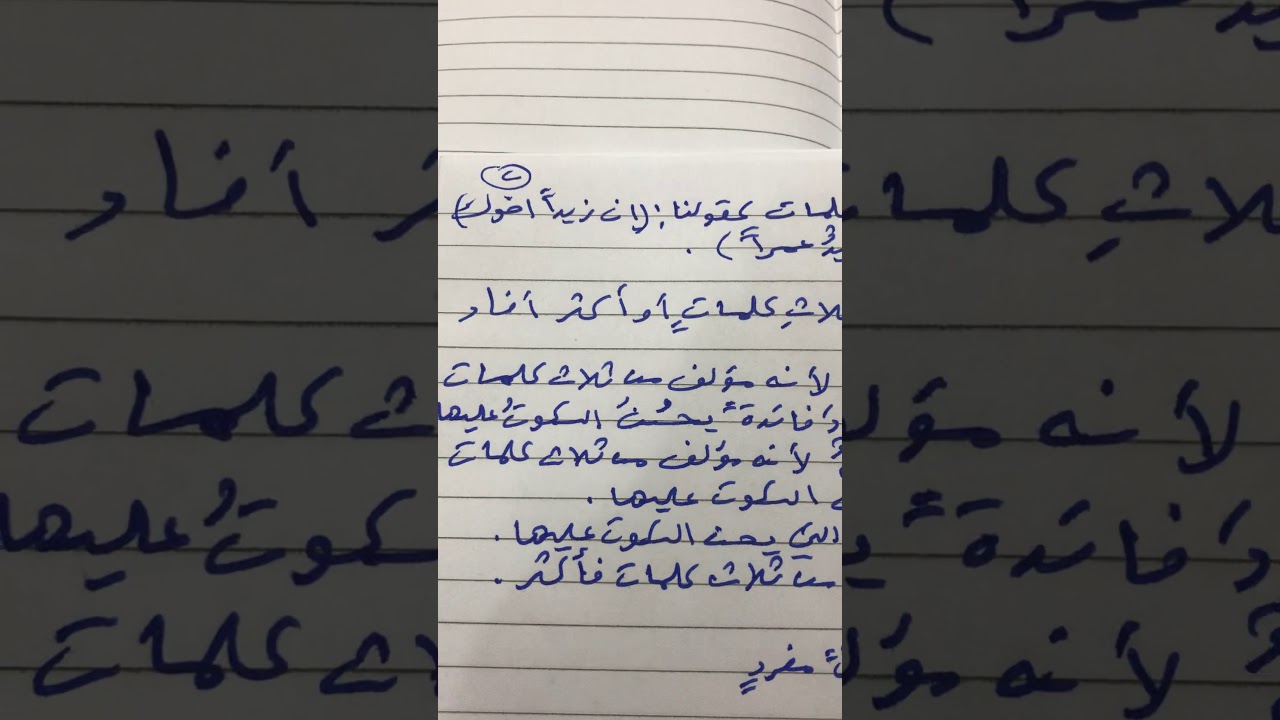 ٢
كقولنا: (إن زيداً أخوك)
عمراً).
كلماتٍ أو أكثر أفاد
لأنه مؤلف من ثلاث كلمات
فائدةً يحسُنُ السكوتُ عليها
لأنه مؤلف من ثلاث كلمات
السكوت عليها.
التي يحسن السكوت عليها.
من ثلاث كلمات فأكثر.
مفردٍ